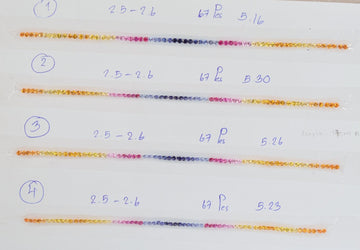 1 2.5-2.6 67 Pcs 5.16
2 2.5-2.6 67 Pcs 5.30
3 2.5-2.6 67 Pcs 5.26
4 2.5-2.6 67 Pcs 5.23